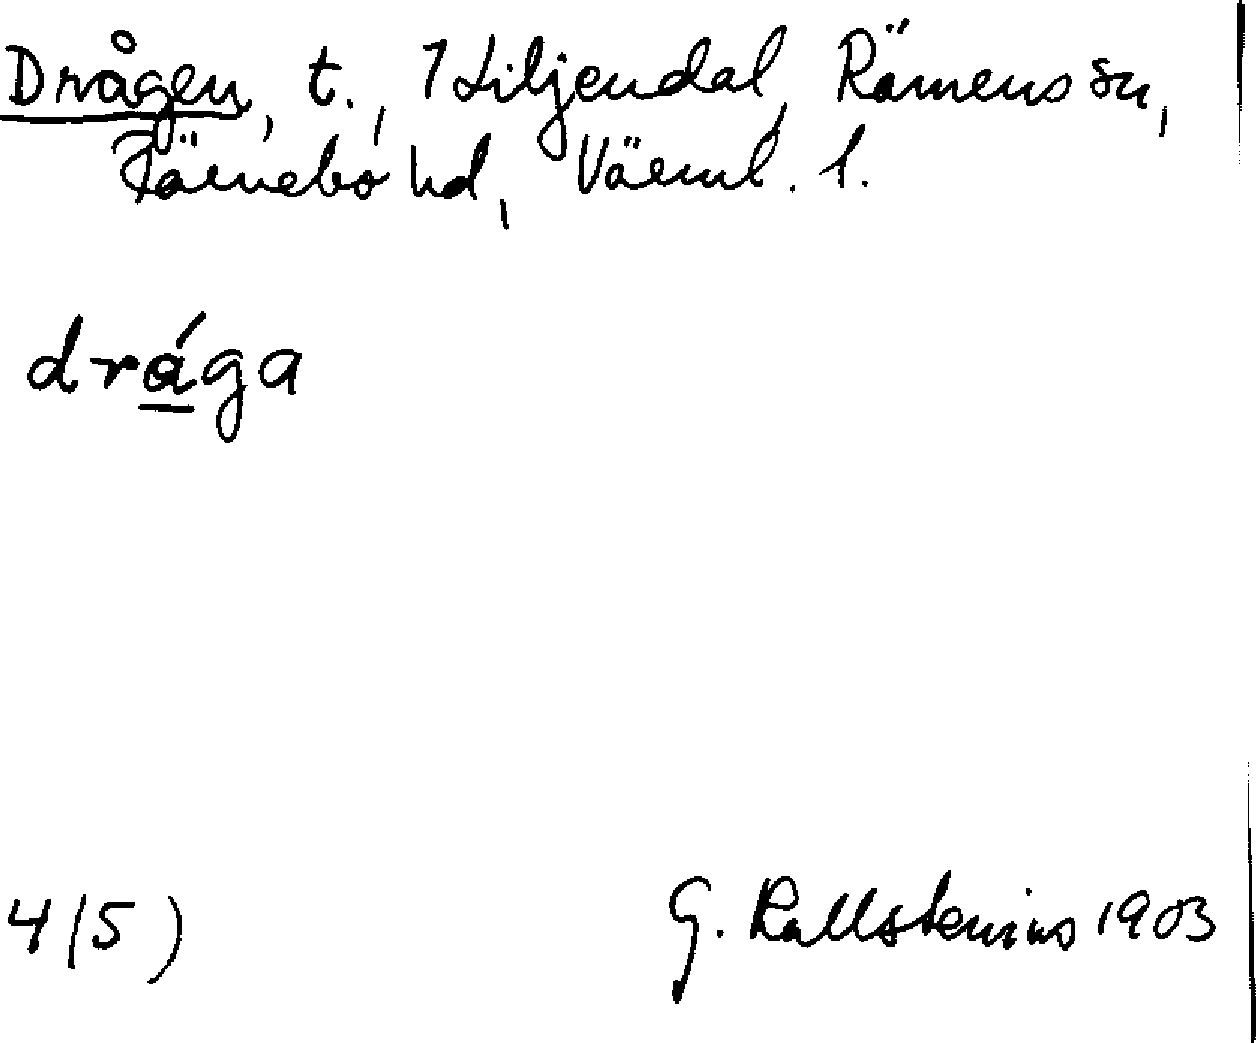 Drågen, t., 1 Liljendal, Rämens sn,
Färnebo hd, Värml. l.
drága
4/5) G. Kallstenius 1903